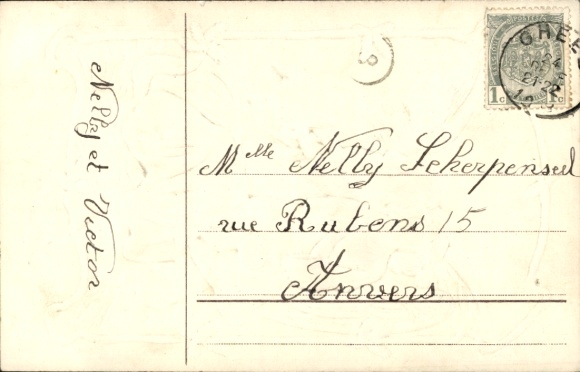 Nelly et Victor
Mlle Nelly Scherpenseel
rue Rubens 15
Anvers
GHEEL
24
21-22
1c 1c